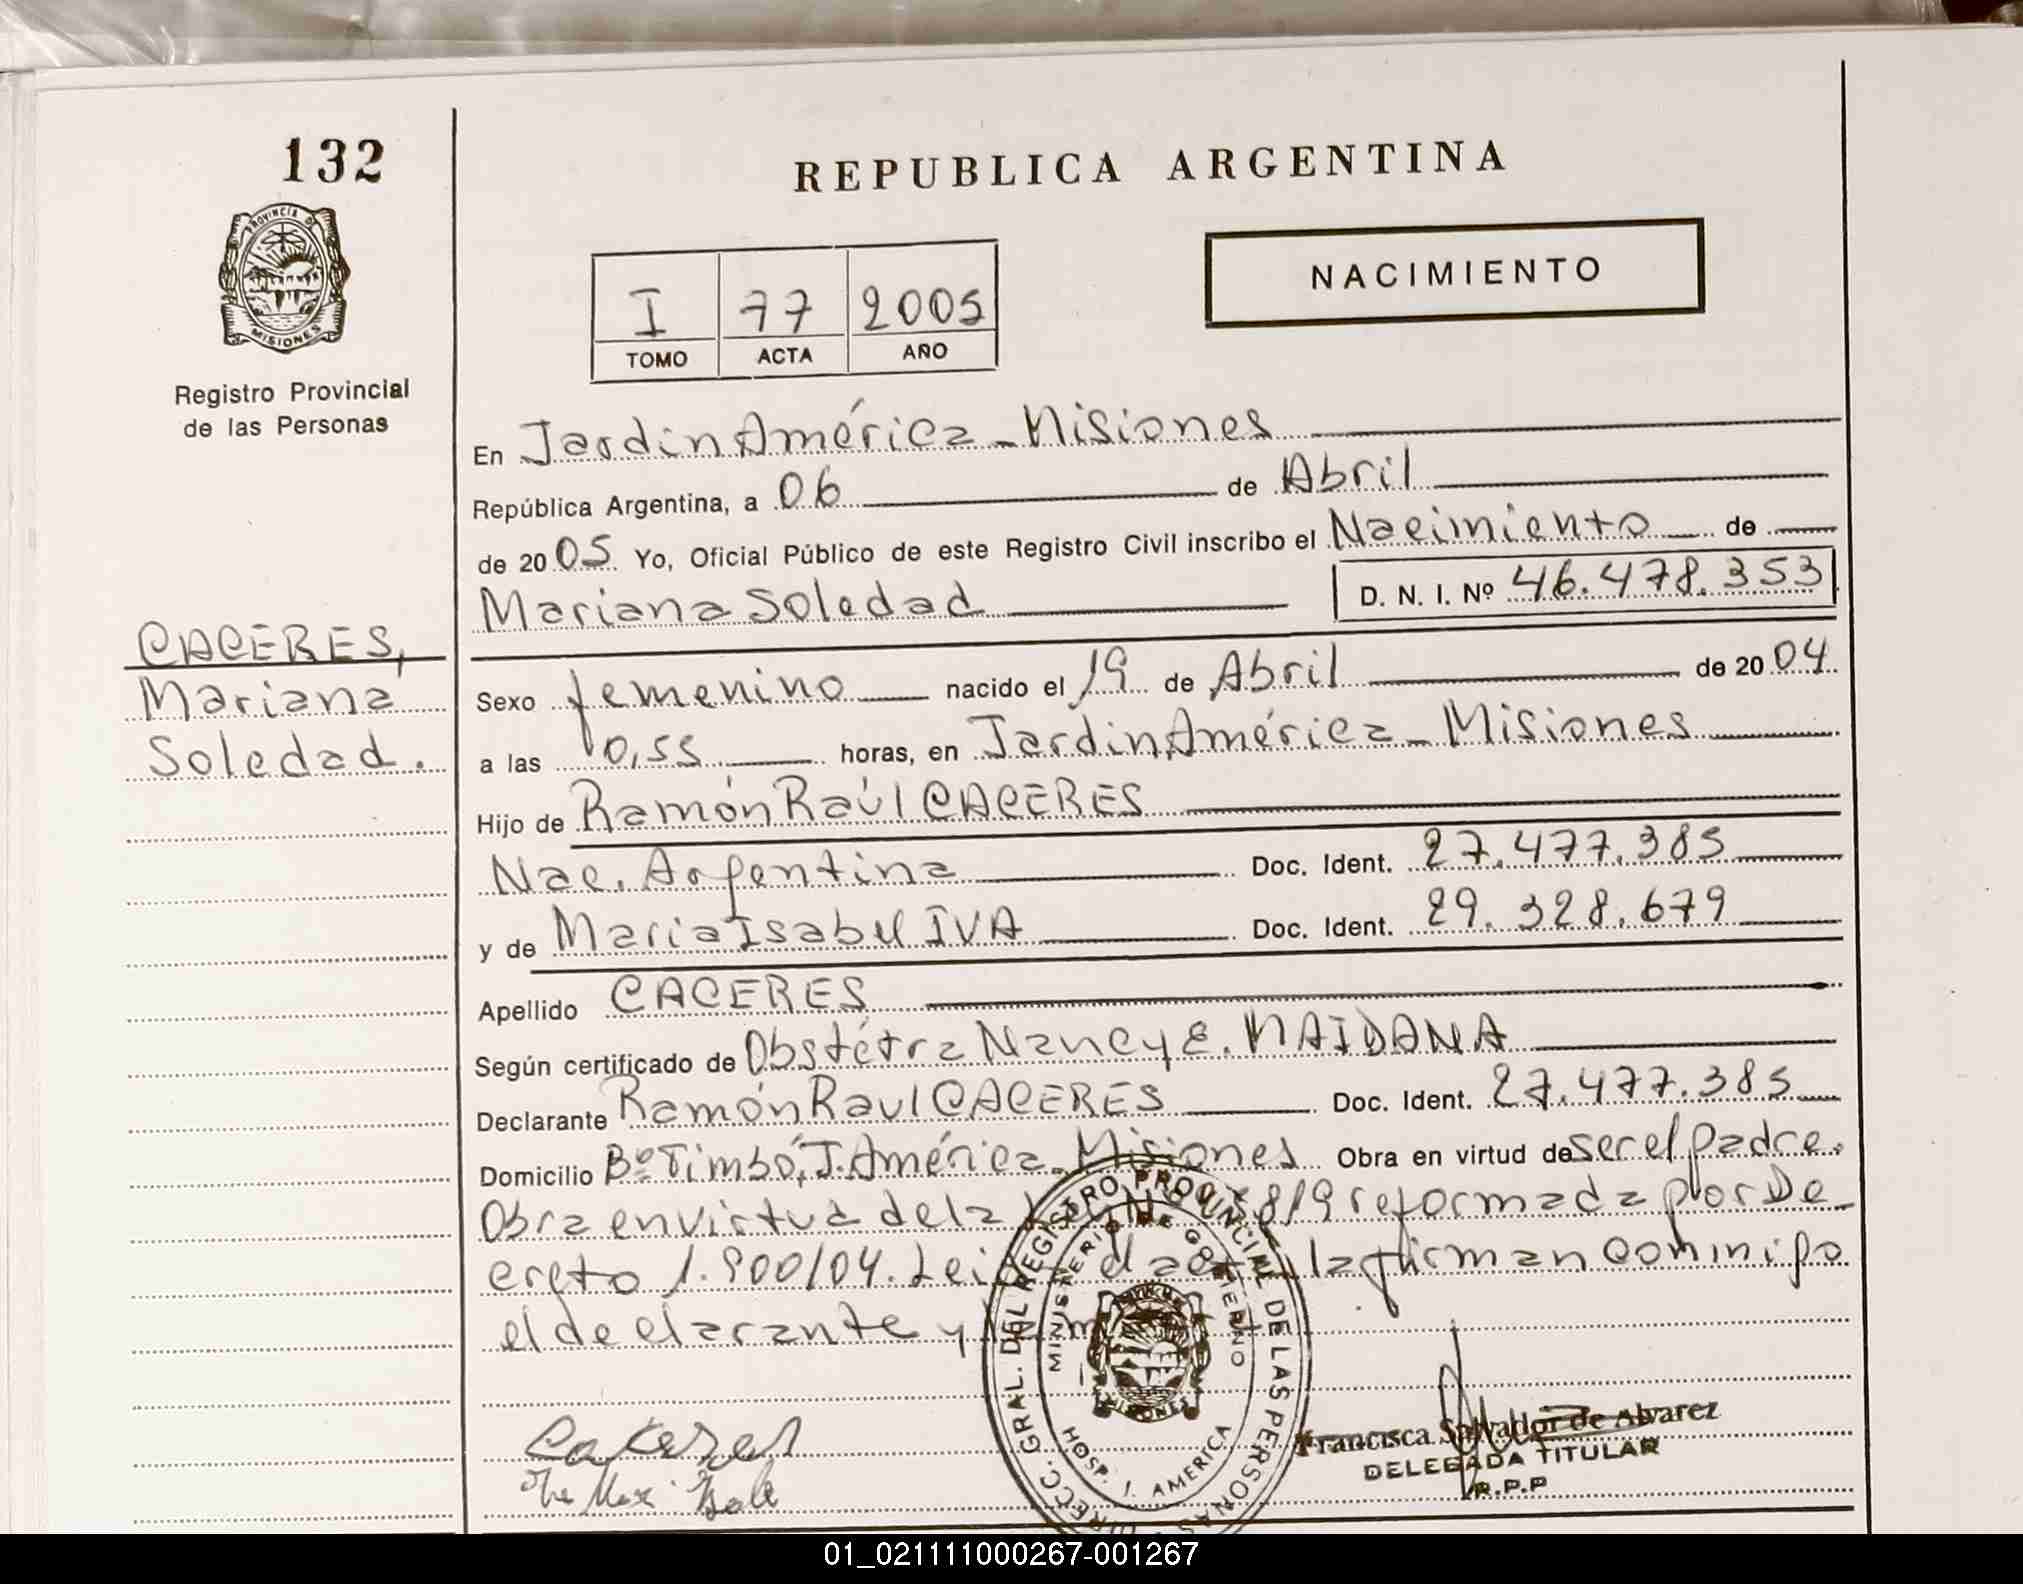 132
REPUBLICA ARGENTINA
PROVINCIA DE
MISIONES
NACIMIENTO
I 77 2005
TOMO ACTA AÑO
Registro Provincial
de las Personas
En Jardín América - Misiones
República Argentina, a 06 de Abril
de 2005 Yo, Oficial Público de este Registro Civil inscribo el Nacimiento de
Mariana Soledad D. N. I. Nº 46.478.353
CACERES,
Mariana
Soledad.
Sexo femenino nacido el 19 de Abril de 2004
a las 10,55 horas, en Jardín América - Misiones
Hijo de Ramón Raúl CACERES
Nac. Argentina Doc. Ident. 27.477.385
y de Maria Isabel IVA Doc. Ident. 29.328.679
Apellido CACERES
Según certificado de Obstétra Nancy E. MAIDANA
Declarante Ramón Raul CACERES Doc. Ident. 27.477.385
Domicilio Bº Timbó, J. América - Misiones Obra en virtud de ser el padre.
Obra en virtud de la 819 reformada por De-
creto 1.900/04. Leí la firman conmigo
el declarante y
DIRECC. GRAL. DEL REGISTRO PROVINCIAL DE LAS PERSONAS
MINISTERIO DE GOBIERNO
MISIONES
HOSP. J. AMERICA
Francisca Salvador de Alvarez
DELEGADA TITULAR
R.P.P
01_021111000267-001267